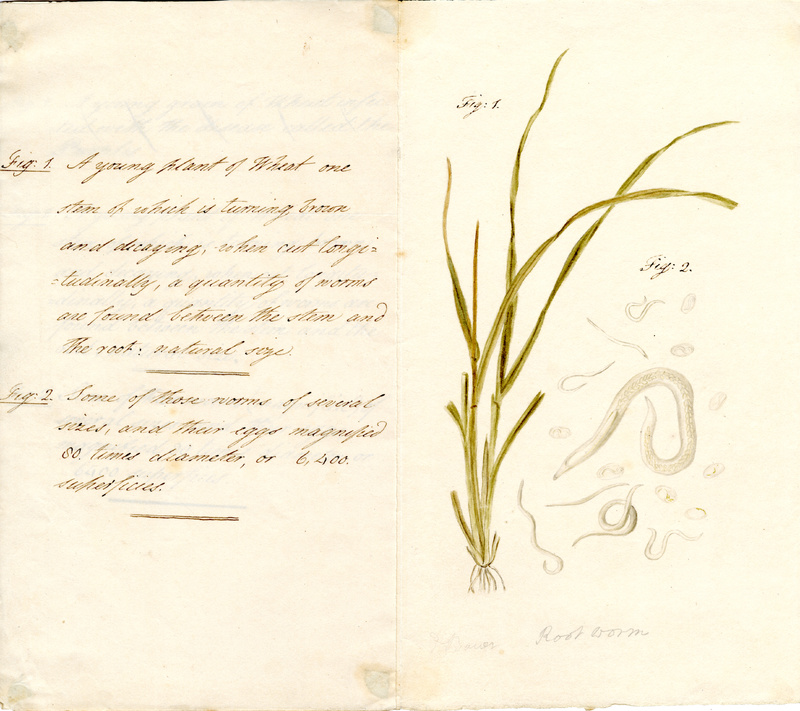 Fig: 1. A young plant of Wheat one
stem of which is turning brown
and decaying, when cut longi=
=tudinally, a quantity of worms
are found between the stem and
the root: natural size.
Fig: 2. Some of those worms of several
sizes, and their eggs magnified
80. times diameter, or 6,400.
superficies.
Fig: 1.
Fig: 2.
Root worm